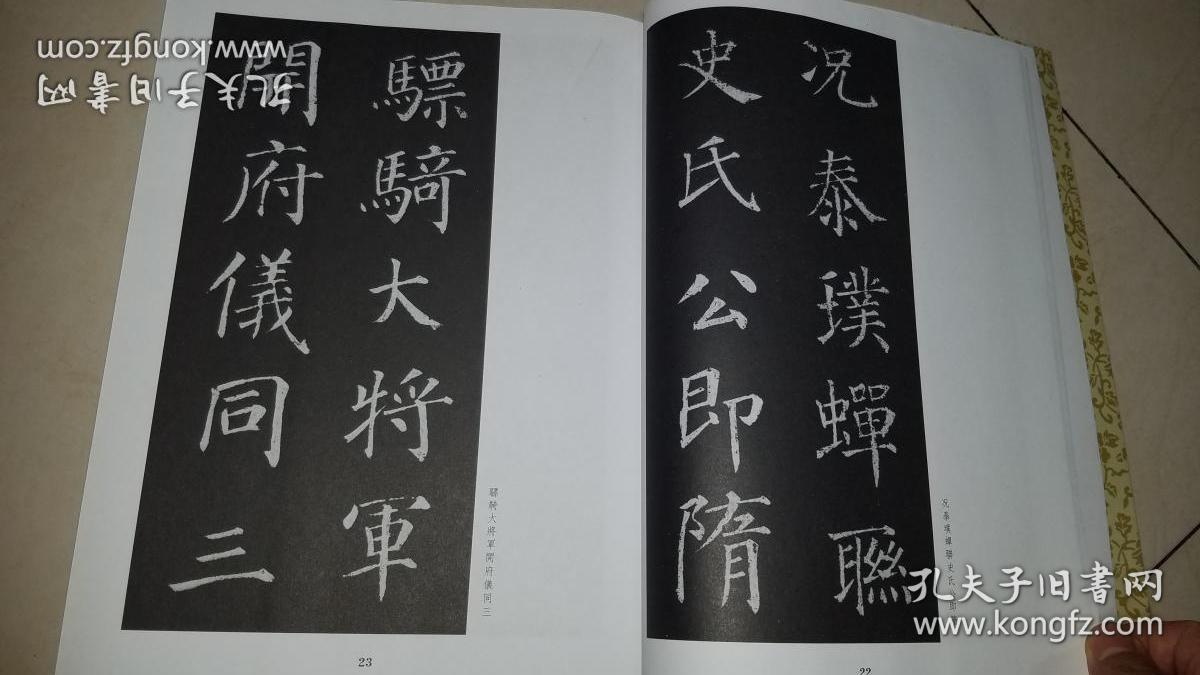 况泰璞蟬聯
史氏公即隋
况泰璞蟬聯史氏
即
22
驃騎大將軍
開府儀同三
驃騎大將軍開府儀同三
23
www.kongfz.com
孔夫子旧书网
孔夫子旧书网
www.kongfz.com